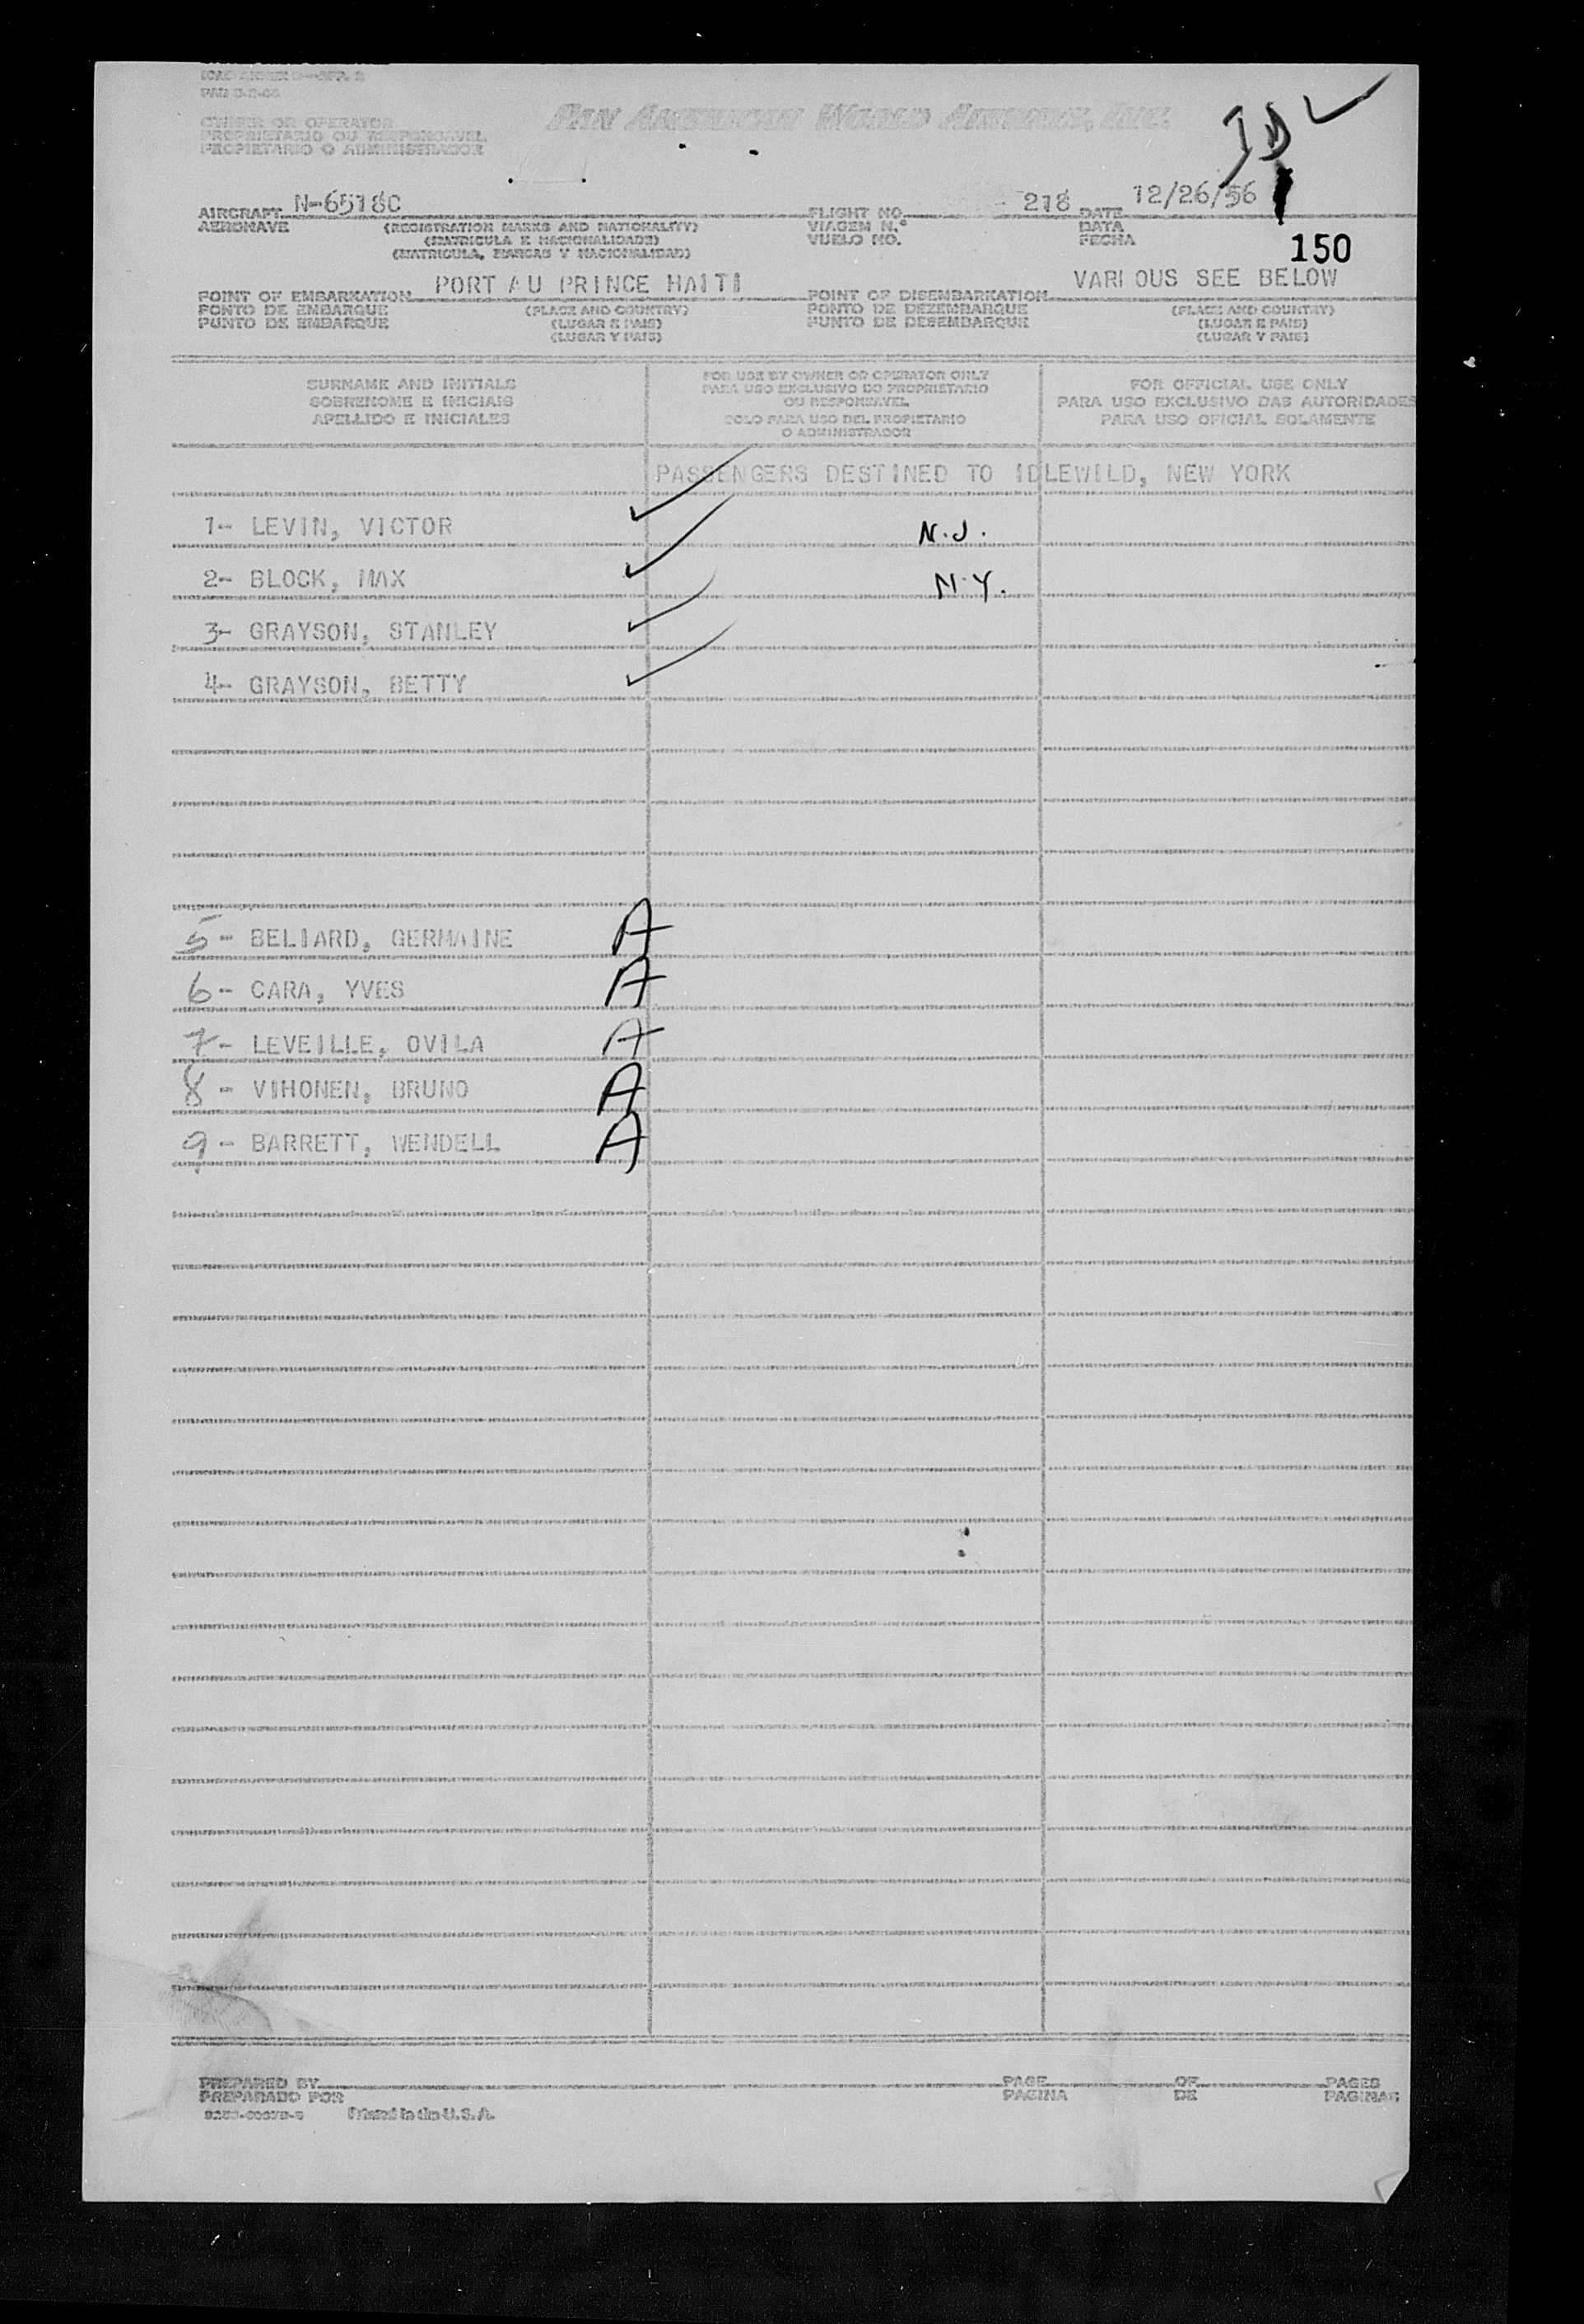 PAN AMERICAN WORLD AIRWAYS, INC.
OWNER OR OPERATOR
PROPRIETARIO OU RESPONSAVEL
PROPIETARIO O ADMINISTRADOR
AIRCRAFT N-6518C FLIGHT NO. 218 DATE 12/26/56
AERONAVE (REGISTRATION MARKS AND NATIONALITY) VIAGEM N.º DATA
(MATRICULA E NACIONALIDADE) VUELO NO. FECHA
(MATRICULA, MARCAS Y NACIONALIDAD) 150
POINT OF EMBARKATION PORT AU PRINCE HAITI POINT OF DISEMBARKATION VARIOUS SEE BELOW
PONTO DE EMBARQUE (PLACE AND COUNTRY) PONTO DE DEZEMBARQUE (PLACE AND COUNTRY)
PUNTO DE EMBARQUE (LUGAR E PAIS) PUNTO DE DESEMBARQUE (LUGAR E PAIS)
(LUGAR Y PAIS) (LUGAR Y PAIS)
SURNAME AND INITIALS
SOBRENOME E INICIAIS
APELLIDO E INICIALES
FOR USE BY OWNER OR OPERATOR ONLY
PARA USO EXCLUSIVO DO PROPRIETARIO
OU RESPONSAVEL
SOLO PARA USO DEL PROPIETARIO
O ADMINISTRADOR
FOR OFFICIAL USE ONLY
PARA USO EXCLUSIVO DAS AUTORIDADES
PARA USO OFICIAL SOLAMENTE
PASSENGERS DESTINED TO IDLEWILD, NEW YORK
1- LEVIN, VICTOR N.J.
2- BLOCK, MAX N.Y.
3- GRAYSON, STANLEY
4- GRAYSON, BETTY
5- BELIARD, GERMAINE A
6- CARA, YVES A
7- LEVEILLE, OVILA A
8- VIHONEN, BRUNO A
9- BARRETT, WENDELL A
PREPARED BY PAGE OF PAGES
PREPARADO POR PAGINA DE PAGINAS
Printed in the U.S.A.